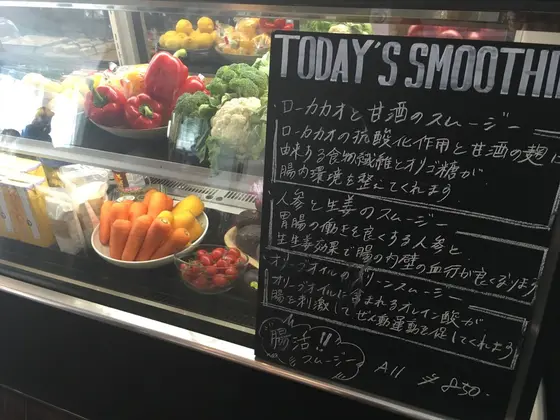 TODAY'S SMOOTHI
ローカカオと甘酒のスムージー
ローカカオの抗酸化作用と甘酒の麹
由来する食物繊維とオリゴ糖が
腸内環境を整えてくれます
人参と生姜のスムージー
胃腸の働きを良くする人参と、
生生姜効果で腸の内壁の血行が良くなります
オリーブオイルのグリーンスムージー
オリーブオイルに含まれるオレイン酸が
腸を刺激してぜん動運動を促してくれます
腸活!!
スムージー
All ¥850.